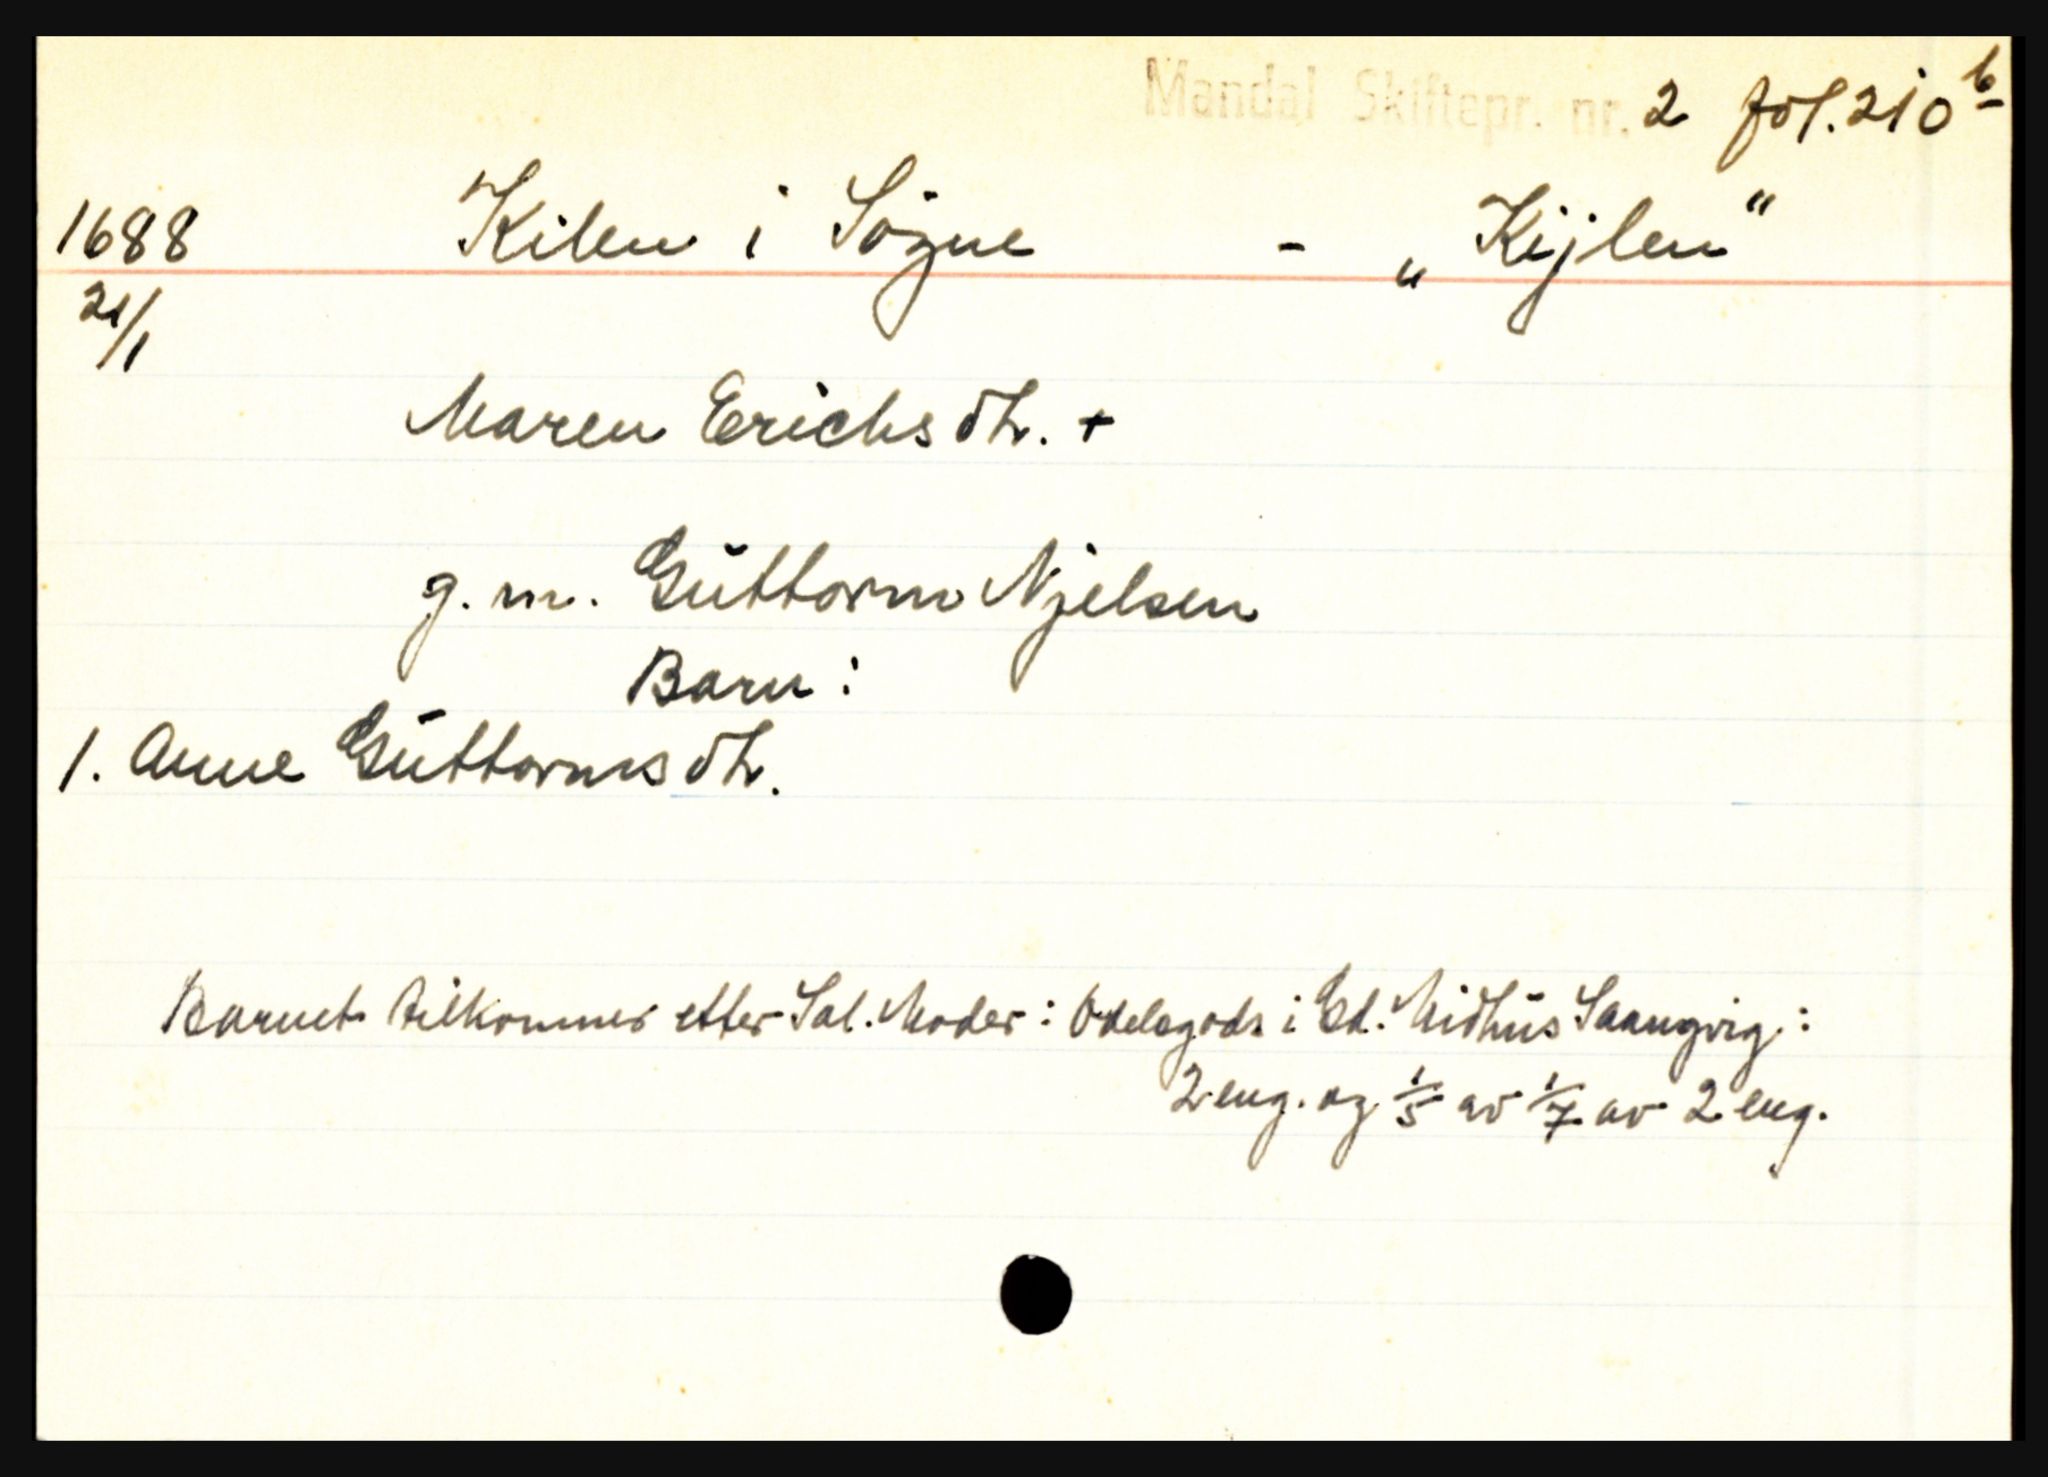 Mandal Skiftepr. nr. 2 fol. 210 b
1688 Kilen i Søgne - „Kijlen"
21/1
Maren Erichsdtr. +
g. m. Guttorm Njelsen
Barn:
1. Anne Guttormsdtr.
Barnet tilkommer etter Sal. Moder: Odelsgods i Ød. Midhus Saangvig:
2 eng. og 1/5 av 1/7 av 2 eng.